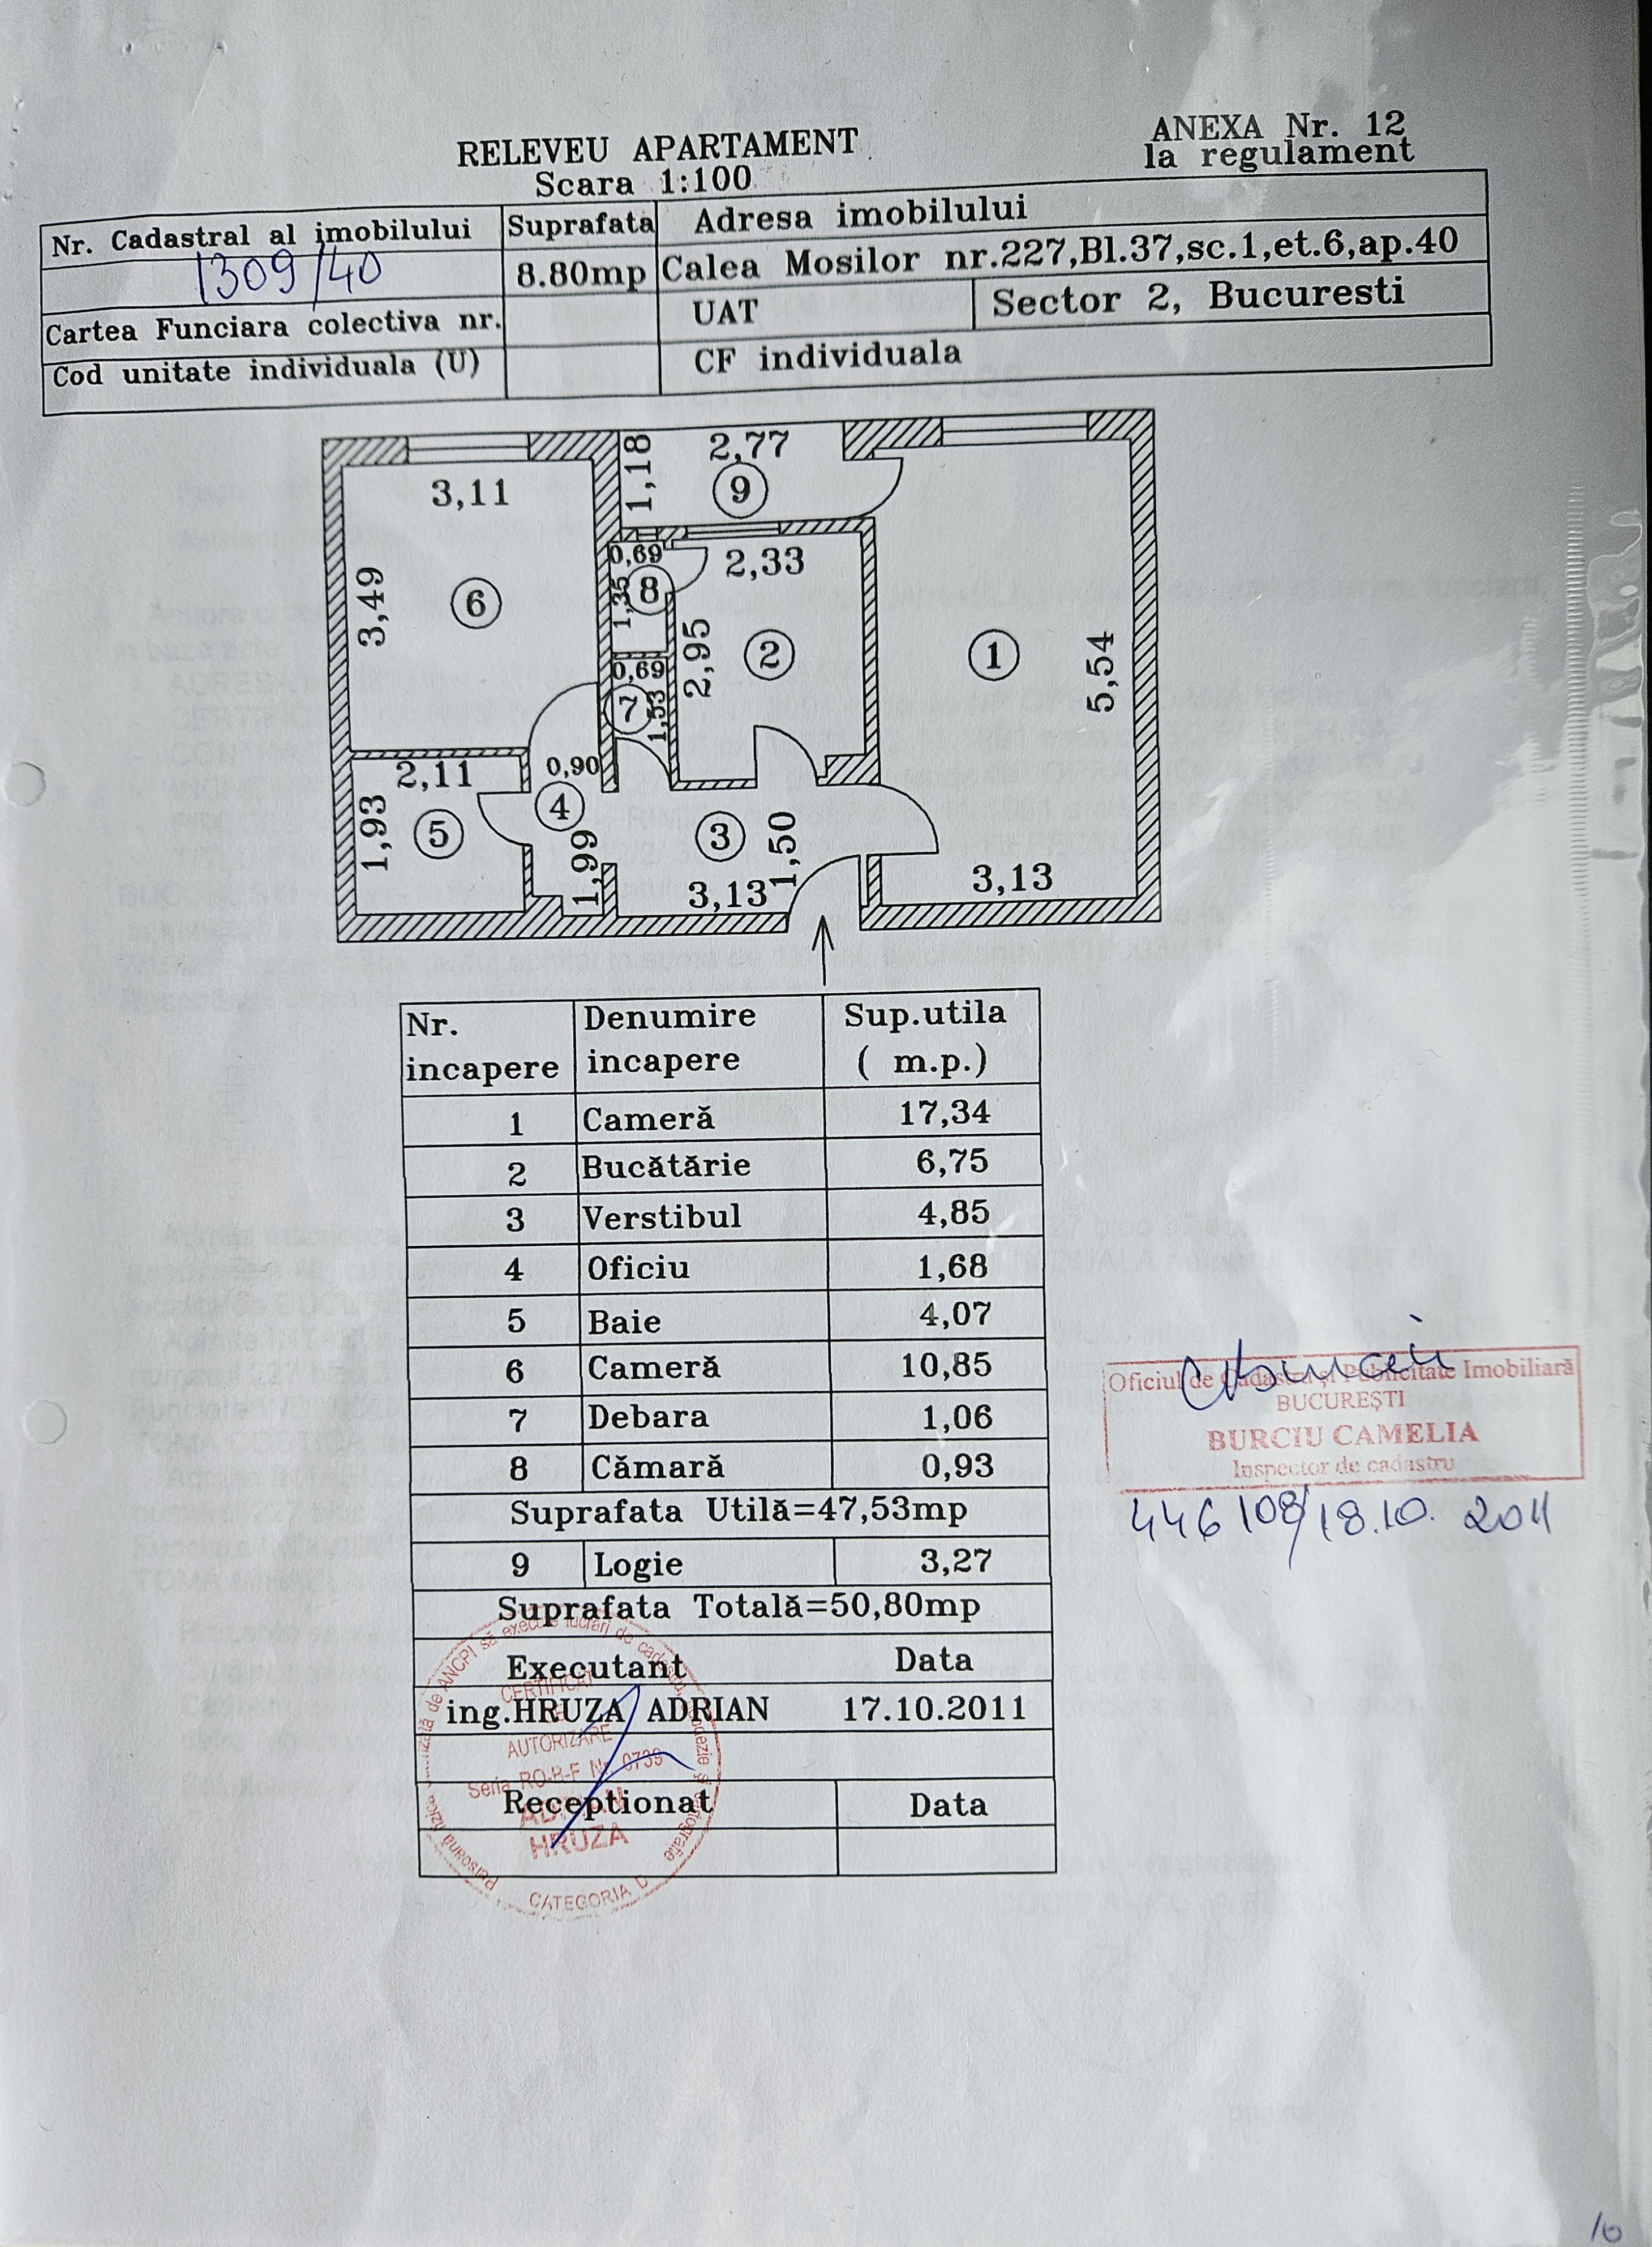 RELEVEU APARTAMENT
Scara 1:100
ANEXA Nr. 12
la regulament
Nr. Cadastral al imobilului
Suprafata
Adresa imobilului
1309/40
8.80mp
Calea Mosilor nr.227,Bl.37,sc.1,et.6,ap.40
Cartea Funciara colectiva nr.
UAT
Sector 2, Bucuresti
Cod unitate individuala (U)
CF individuala
3,11
1,18
2,77
9
3,49
6
0,69
1,35
8
2,33
2,95
2
1
5,54
0,69
7
1,53
2,11
0,90
1,93
5
4
1,99
3
1,50
3,13
3,13
Nr. incapere
Denumire incapere
Sup.utila ( m.p.)
1 Cameră 17,34
2 Bucătărie 6,75
3 Verstibul 4,85
4 Oficiu 1,68
5 Baie 4,07
6 Cameră 10,85
7 Debara 1,06
8 Cămară 0,93
Suprafata Utilă=47,53mp
9 Logie 3,27
Suprafata Totală=50,80mp
Executant Data
ing.HRUZA ADRIAN 17.10.2011
Receptionat Data
CERTIFICAT
AUTORIZARE
Seria RO-B-F Nr. 0739
ADRIAN
HRUZA
CATEGORIA D
Oficiul de Cadastru și Publicitate Imobiliară
BUCUREȘTI
BURCIU CAMELIA
Inspector de cadastru
446108/18.10.2011
10